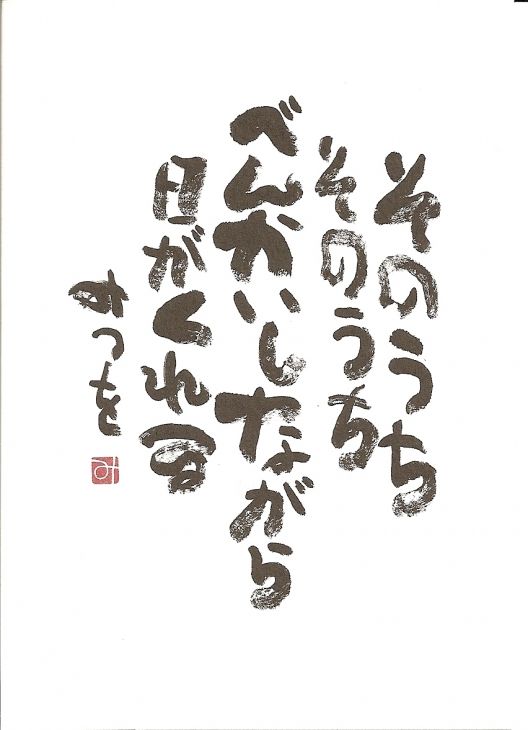 そのうち
そのうち
べんかいしながら
日がくれる
みつを
み